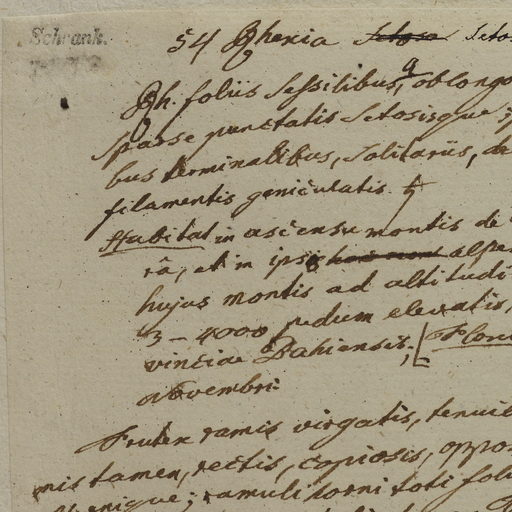 Schrank.
54 Rhexia Setosa Seto
Rh. foliis sessilibus, oblongo
sparse punctatis setosisque;
bus terminalibus, solitariis, de
filamentis geniculatis. ♄
Habitat in ascensu montis de
râ, et in ipsi alpe
hujus montis ad altitudi
3-4000 pedum elevatis,
vinciae Bahiensis; [Flore
Novembri
Frutex ramis virgatis, tenui
mis tamen, rectis, copiosis, oppo
enique; ramuli horni toti foli